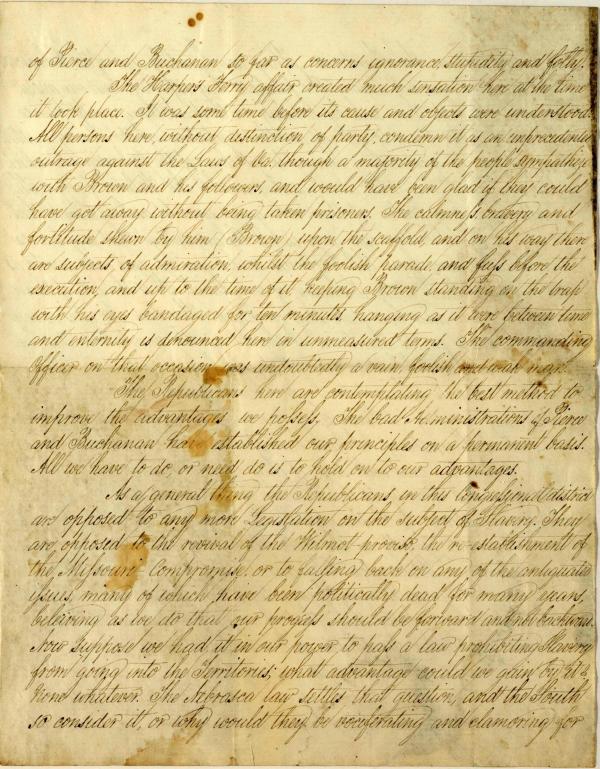 of Pierce and Buchanan so far as concerns ignorance, stupidity and folly.
The Harpers Ferry affair created much sensation here at the time
it took place. It was some time before its cause and objects were understood.
All persons here, without distinction of party, condemn it as an unprecedented
outrage against the Laws of Va. though a majority of the people sympathize
with Brown and his followers, and would have been glad if they could
have got away without being taken prisoners. The calmness, bravery and
fortitude shewn by him (Brown) upon the scaffold, and on his way there
are subjects of admiration, whilst the foolish parade, and fuss before the
execution, and up to the time of it, keeping Brown standing on the trap
with his eyes bandaged for ten minutes, hanging as it were between time
and eternity is denounced here in unmeasured terms. The commanding
Officer on that occasion, was undoubtedly a vain, foolish and weak man.
The Republicans here are contemplating the best method to
improve the advantages we possess, The bad Administrations of Pierce
and Buchanan have established our principles on a permanent basis.
All we have to do, or need do is to hold on to our advantages.
As a general thing the Republicans in this Congressional district
are opposed to any more Legislation on the subject of Slavery. They
are opposed to the revival of the Wilmot proviso, the re-establishment of
the Missouri Compromise, or to falling back on any of the antiquated
issues, many of which have been politically dead for many years,
believing as we do that our progress should be forward and not backwards.
Now suppose we had it in our power to pass a law prohibiting Slavery
from going into the Territories; what advantage could we gain by it?
None whatever. The Nebrasca law settles that question, and the South
so consider it, or why would they be vociferating and clamoring for